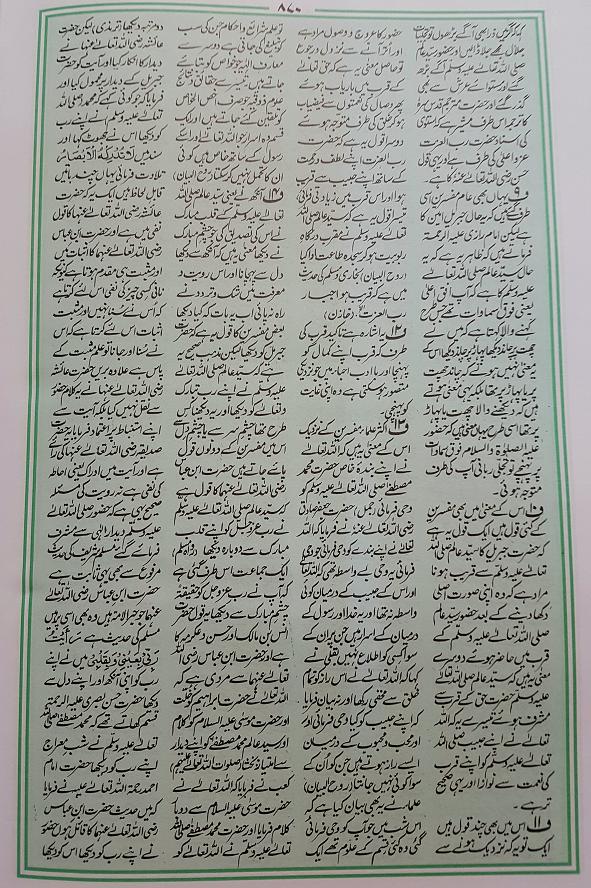 ۸۷۰
کہ گر میں ذرا بھی آگے بڑھوں تو تجلیات
جلال مجھے جلا ڈالیں اور حضور سید عالم
صلی اللہ تعالٰے علیہ وسلم آگے بڑھ
گئے اور مستوائے عرش سے بھی
گذر گئے اور حضرت مترجم قدس سرہٗ
کا ترجمہ اس طرف مشیر ہے کہ استوٰی
کی اسناد حضرت رب العزت
عزوعلا کی طرف ہے اور یہی قول
حسن رضی اللہ تعالٰے عنہ کا ہے۔
ف۹ یہاں بھی عام مفسرین اسی
طرف گئے ہیں کہ یہ حال جبریل امین کا
ہے لیکن امام رازی علیہ الرحمۃ
فرماتے ہیں کہ ظاہر یہ ہے کہ یہ
حال سید عالم صلی اللہ تعالٰے
علیہ وسلم کا ہے کہ آپ افق اعلٰی
یعنی فوق سماوات تھے جس طرح
کہنے والا کہتا ہے کہ میں نے
چھت پر چاند دیکھا پہاڑ پر چاند دیکھا اس کے
یہ معنی نہیں ہوتے کہ چاند چھت
پر یا پہاڑ پر تھا بلکہ یہی معنی ہوتے
ہیں کہ دیکھنے والا چھت یا پہاڑ
پر تھا اسی طرح یہاں معنٰی ہیں کہ حضور
علیہ الصلوٰۃ والسلام فوق سماوات
پر پہنچے تو تجلی ربانی آپ کی طرف
متوجہ ہوئی۔
ف۱۰ اس کے معنی میں بھی مفسرین
کے کئی قول ہیں ایک قول یہ ہے
کہ حضرت جبریل کا سید عالم صلی اللہ
تعالٰے علیہ وسلم سے قریب ہونا
مراد ہے کہ وہ اپنی صورت اصلی
دکھا دینے کے بعد حضور سید عالم
صلی اللہ تعالٰے علیہ وسلم کے
قرب میں حاضر ہوئے دوسرے
معنٰی یہ ہیں کہ سید عالم صلی اللہ تعالٰے
علیہ وسلم حضرت حق کے قرب سے
مشرف ہوئے تیسرے یہ کہ اللہ
تعالٰے نے اپنے حبیب صلی اللہ
تعالٰے علیہ وسلم کو اپنے قرب
کی نعمت سے نوازا اور یہی صحیح
تر ہے
ف۱۱ اس میں بھی چند قول ہیں
ایک تو یہ کہ نزدیک ہونے سے
حضور کا عروج و وصول مراد ہے
اور اُتر آنے سے نزول و رجوع
تو حاصل معنٰی یہ ہے کہ حق تعالٰے
کے قرب میں باریاب ہوئے
پھر وصال کی نعمتوں سے فیضیاب
ہو کر خلق کی طرف متوجہ ہوئے
دوسرا قول یہ ہے کہ حضرت
رب العزت اپنے لطف و رحمت
کے ساتھ اپنے حبیب سے قریب
ہوا اور اس قرب میں زیادتی فرمائی
تیسرا قول یہ ہے کہ سید عالم صلی اللہ
تعالٰے علیہ وسلم نے مقرب درگاہ
ربوبیت ہو کر سجدہ طاعت ادا کیا
(روح البیان) بخاری ومسلم کی حدیث
میں ہے کہ قریب ہوا جبار
رب العزت (خازن)
ف۱۲ یہ اشارہ ہے تاکید قرب کی
طرف کہ قرب اپنے کمال کو
پہنچا اور باادب احبا میں جو نزدیکی
متصور ہو سکتی ہے وہ اپنی غایت
کو پہنچی۔
ف۱۳ اکثر علماء مفسرین کے نزدیک
اس کے معنٰی یہ ہیں کہ اللہ تعالٰے
نے اپنے بندہ خاص حضرت محمد
مصطفٰے صلی اللہ تعالٰے علیہ وسلم کو
وحی فرمائی (جمل) حضرت جعفر صادق
رضی اللہ تعالٰے عنہ نے فرمایا کہ اللہ
تعالٰے نے اپنے بندے کو وحی فرمائی جو وحی
فرمائی یہ وحی بے واسطہ تھی کہ اللہ تعالٰے
اور اس کے حبیب کے درمیان کوئی
واسطہ نہ تھا اور یہ خدا اور رسول کے
درمیان کے اسرار ہیں جن پر ان کے
سوا کسی کو اطلاع نہیں بقلی نے
کہا کہ اللہ تعالٰے نے اس راز کو تمام
خلق سے مخفی رکھا اور نہ بیان فرمایا
کہ اپنے حبیب کو کیا وحی فرمائی اور
محب و محبوب کے درمیان
ایسے راز ہوتے ہیں جن کو ان کے
سوا کوئی نہیں جانتا (روح البیان)
علماء نے یہ بھی بیان کیا ہے کہ
اس شب میں جو آپ کو وحی فرمائی
گئی وہ کئی قسم کے علوم تھے ایک
تو علم شرائع و احکام جن کی سب
کو تبلیغ کی جاتی ہے دوسرے
معارف الٰہیہ جو خواص کو بتائے
جاتے ہیں تیسرے حقائق و نتائج
علوم ذوقیہ جو صرف اخص الخواص
کو تلقین کئے جاتے ہیں اور ایک
قسم وہ اسرار جو اللہ تعالٰے اور اس کے
رسول کے ساتھ خاص ہیں کوئی
ان کا تحمل نہیں کر سکتا (روح البیان)
ف۱۴ آنکھ نے یعنی سید عالم صلی اللہ
تعالٰے علیہ وسلم کے قلب مبارک
نے اس کی تصدیق کی جو چشم مبارک
نے دیکھا معنٰی یہ ہیں کہ آنکھ سے دیکھا
دل سے پہچانا اور اس رویت و
معرفت میں شک و تردد نے
راہ نہ پائی اب یہ بات کہ کیا دیکھا
بعض مفسرین کا قول یہ ہے کہ حضرت
جبریل کو دیکھا لیکن مذہب صحیح یہ
ہے کہ سید عالم صلی اللہ تعالٰے
علیہ وسلم نے اپنے رب تبارک
و تعالٰے کو دیکھا اور یہ دیکھنا کس
طرح تھا چشم سر سے یا چشم دل سے
اس میں مفسرین کے دونوں قول
پائے جاتے ہیں حضرت ابن عباس
رضی اللہ تعالٰے عنہما کا قول ہے
کہ سید عالم صلی اللہ تعالٰے علیہ وسلم
نے رب عزوجل کو اپنے قلب
مبارک سے دوبارہ دیکھا (رواہ مسلم)
ایک جماعت اس طرف گئی ہے
کہ آپ نے رب عزوجل کو حقیقۃً
چشم مبارک سے دیکھا یہ قول حضرت
انس بن مالک اور حسن و عکرمہ کا
ہے اور حضرت ابن عباس رضی اللہ
تعالٰے عنہما سے مروی ہے کہ
اللہ تعالٰے نے حضرت ابراہیم کو خلت
اور حضرت موسٰی علیہ السلام کو کلام
اور سید عالم محمد مصطفٰے کو اپنے دیدار
سے امتیاز بخشا (صلوات اللہ تعالٰے علیہم)
کعب نے فرمایا کہ اللہ تعالٰے نے
حضرت موسٰی علیہ السلام سے دوبار
کلام فرمایا اور حضرت محمد مصطفٰے صلی اللہ
تعالٰے علیہ وسلم نے اللہ تعالٰے کو
دو مرتبہ دیکھا (ترمذی) لیکن حضرت
عائشہ رضی اللہ تعالٰے عنہا نے
دیدار کا انکار کیا اور آیت کو حضرت
جبریل کے دیدار پر محمول کیا اور
فرمایا کہ جو کوئی کہے کہ محمد (صلی اللہ
تعالٰے علیہ وسلم) نے اپنے رب
کو دیکھا اس نے جھوٹ کہا اور
سند میں لَا تُدْرِكُهُ الْاَبْصَارُ
تلاوت فرمائی یہاں چند باتیں
قابل لحاظ ہیں ایک یہ کہ حضرت
عائشہ رضی اللہ تعالٰے عنہا کا قول
نفی میں ہے اور حضرت ابن عباس
رضی اللہ تعالٰے عنہما کا اثبات میں
اور مثبت ہی مقدم ہوتا ہے کیونکہ
نافی کسی چیز کی نفی اس لئے کرتا ہے
کہ اس نے سُنا نہیں اور مثبت
اثبات اس لئے کرتا ہے کہ اس
نے سُنا اور جانا تو علم مثبت کے
پاس ہے علاوہ بریں حضرت عائشہ
رضی اللہ تعالٰے عنہا نے یہ کلام حضور
سے نقل نہیں کیا بلکہ آیت سے
اپنے استنباط پر اعتماد فرمایا یہ حضرت
صدیقہ رضی اللہ تعالٰے عنہا کی رائے
ہے اور آیت میں ادراک یعنی احاطہ
کی نفی ہے نہ رویت کی مسئلہ
صحیح یہی ہے کہ حضور صلی اللہ تعالٰے
علیہ وسلم دیدار الٰہی سے مشرف
فرمائے گئے مسلم شریف کی حدیث
مرفوع سے بھی یہی ثابت ہے
حضرت ابن عباس رضی اللہ تعالٰے
عنہما جو حبر الامۃ ہیں وہ بھی اسی پر ہیں
مسلم کی حدیث ہے رَاَيْتُ
رَبِّیْ بِعَيْنِیْ وَبِقَلْبِیْ میں نے اپنے
رب کو اپنی آنکھ اور اپنے دل سے
دیکھا حضرت حسن بصری علیہ الرحمۃ
قسم کھاتے تھے کہ محمد مصطفٰے صلی اللہ
تعالٰے علیہ وسلم نے شب معراج
اپنے رب کو دیکھا حضرت امام
احمد رحمۃ اللہ تعالٰے علیہ نے فرمایا
کہ میں حدیث حضرت ابن عباس
رضی اللہ تعالٰے عنہما کا قائل ہوں حضور
نے اپنے رب کو دیکھا اس کو دیکھا